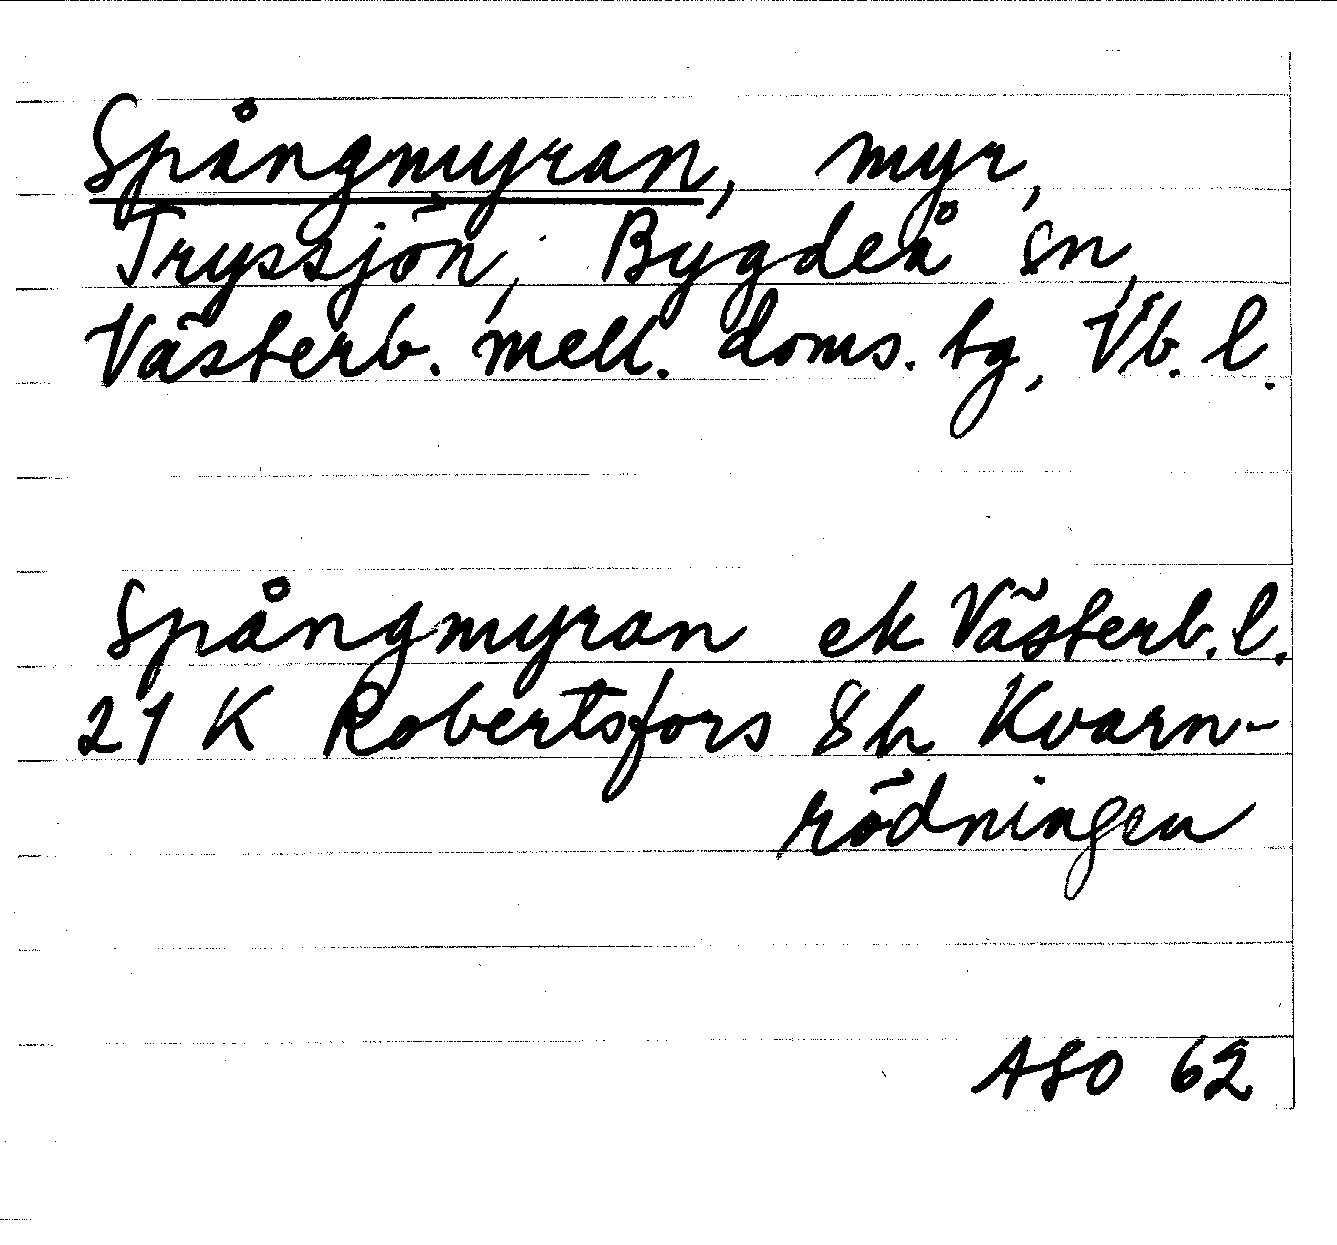 Spångmyran, myr,
Tryssjön, Bygdeå sn,
Västerb. mell. doms. tg, Vb. l.
Spångmyran ek Västerb. l.
21 K Robertsfors 8 h Kvarn-
rödningen
ASO 62